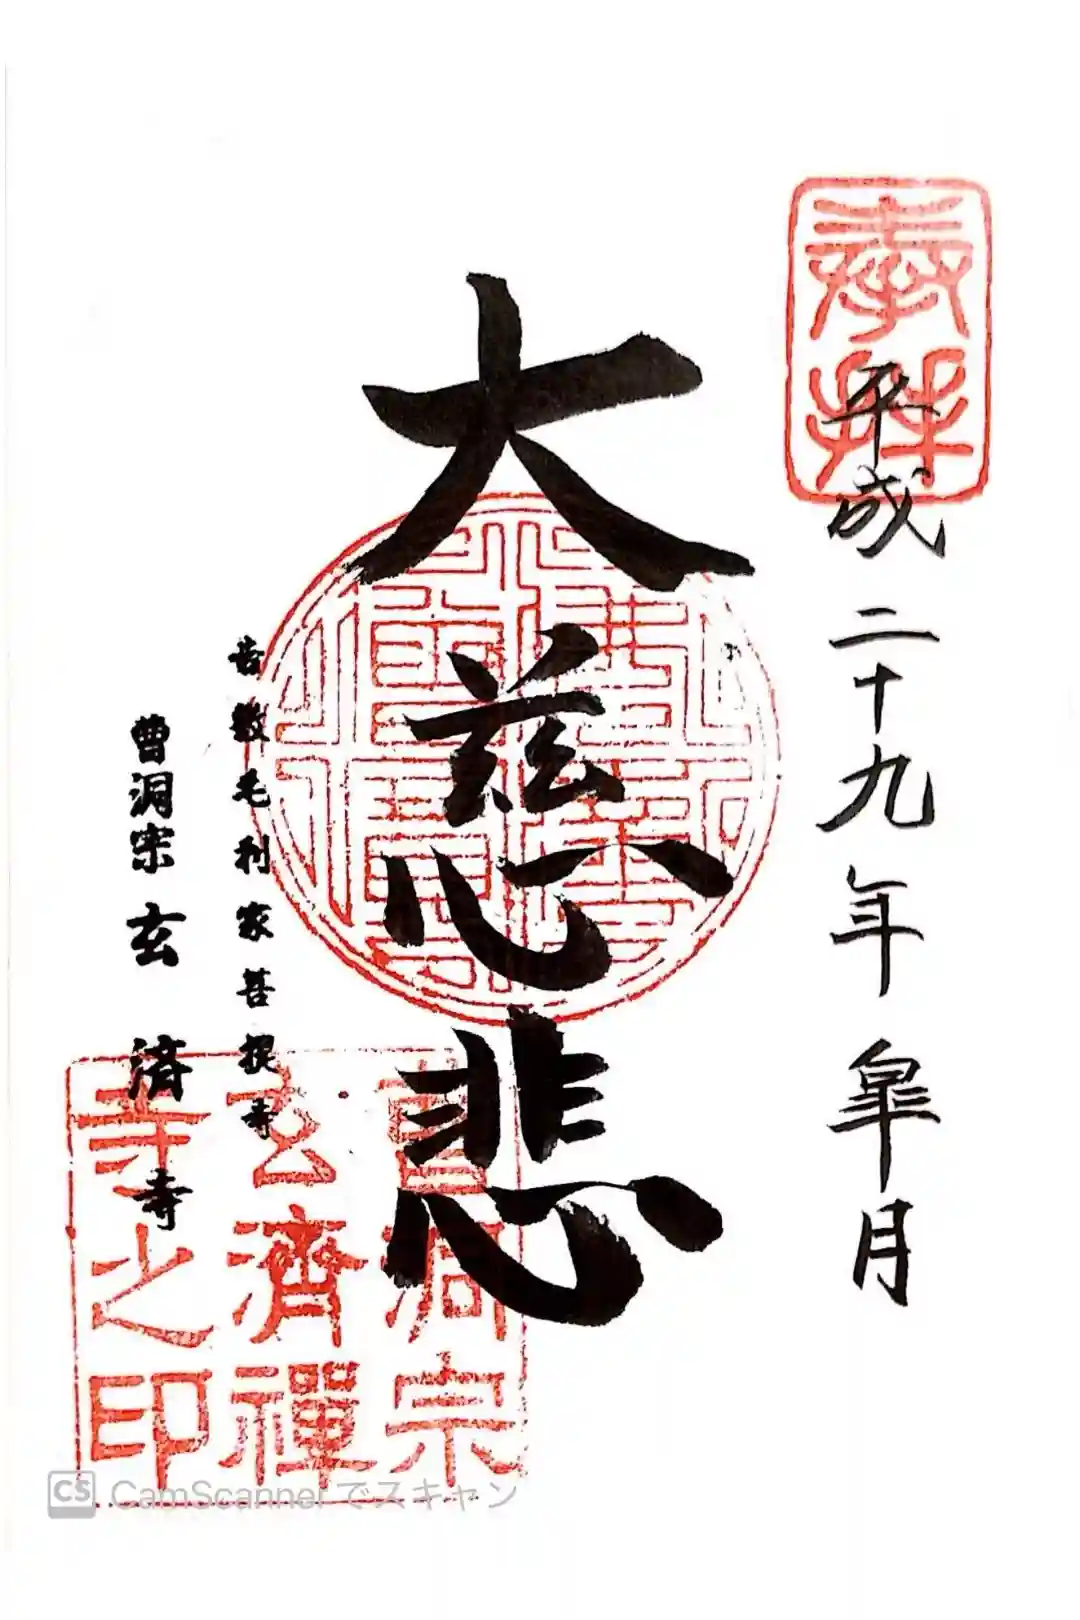 奉拝
平成二十九年皐月
大慈悲
岩瀬毛利家菩提寺
曹洞宗 玄済寺
曹洞宗
玄濟禪
寺之印
CS CamScanner でスキャン